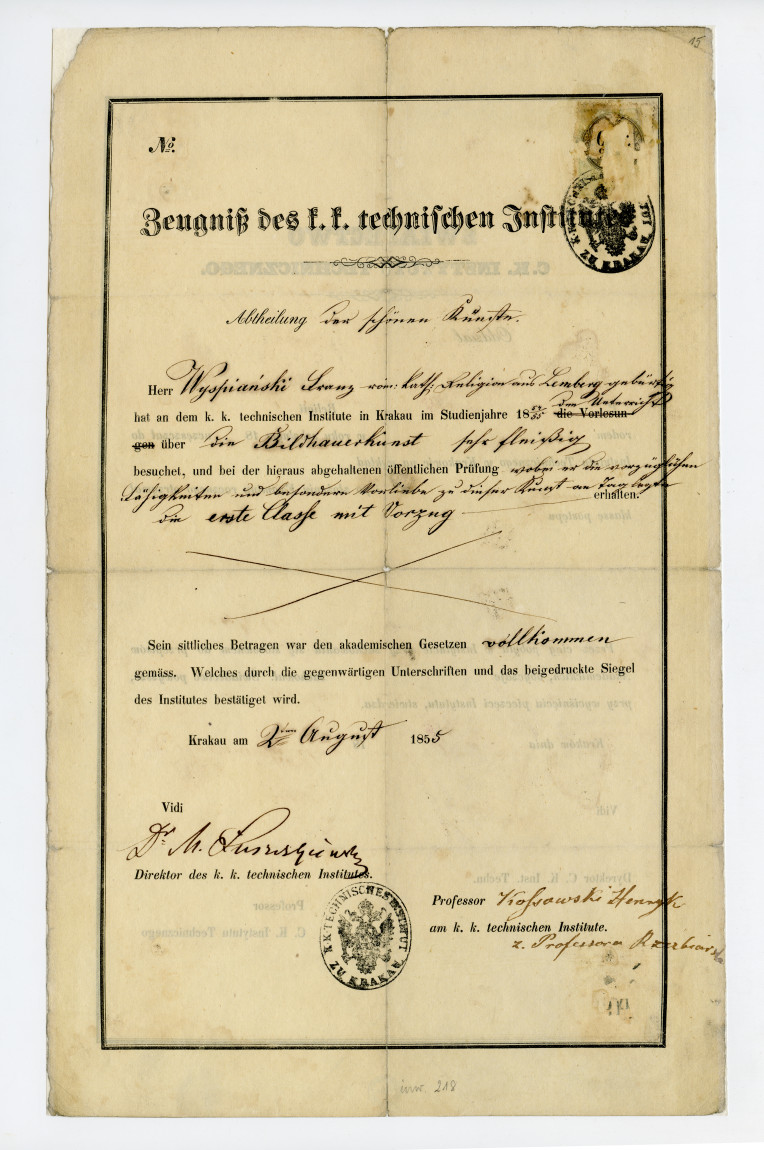 15
No.
Zeugniß des k. k. technischen Institutes
ZU KRAKAU
Abtheilung der schönen Künste.
Herr Wyspiański Franz röm: kath: Religion aus Lemberg gebürtig
den Unterricht
hat an dem k. k. technischen Institute in Krakau im Studienjahre 18 54/55 die Vorlesun-
gen über die Bildhauerkunst sehr fleißig
besuchet, und bei der hieraus abgehaltenen öffentlichen Prüfung wobei er die vorzüglichen
Fähigkeiten und besondere Vorliebe zu dieser Kunst an Tag legte
erhalten.
die erste Classe mit Vorzug
Sein sittliches Betragen war den akademischen Gesetzen vollkommen
gemäss. Welches durch die gegenwärtigen Unterschriften und das beigedruckte Siegel
des Institutes bestätiget wird.
Krakau am 2ten August 1855
Vidi
Dr. M.
Direktor des k. k. technischen Institutes.
K.K. TECHNISCHES INSTITUT
ZU KRAKAU
Professor Kossowski Henryk
am k. k. technischen Institute.
z. Professora
inw. 218